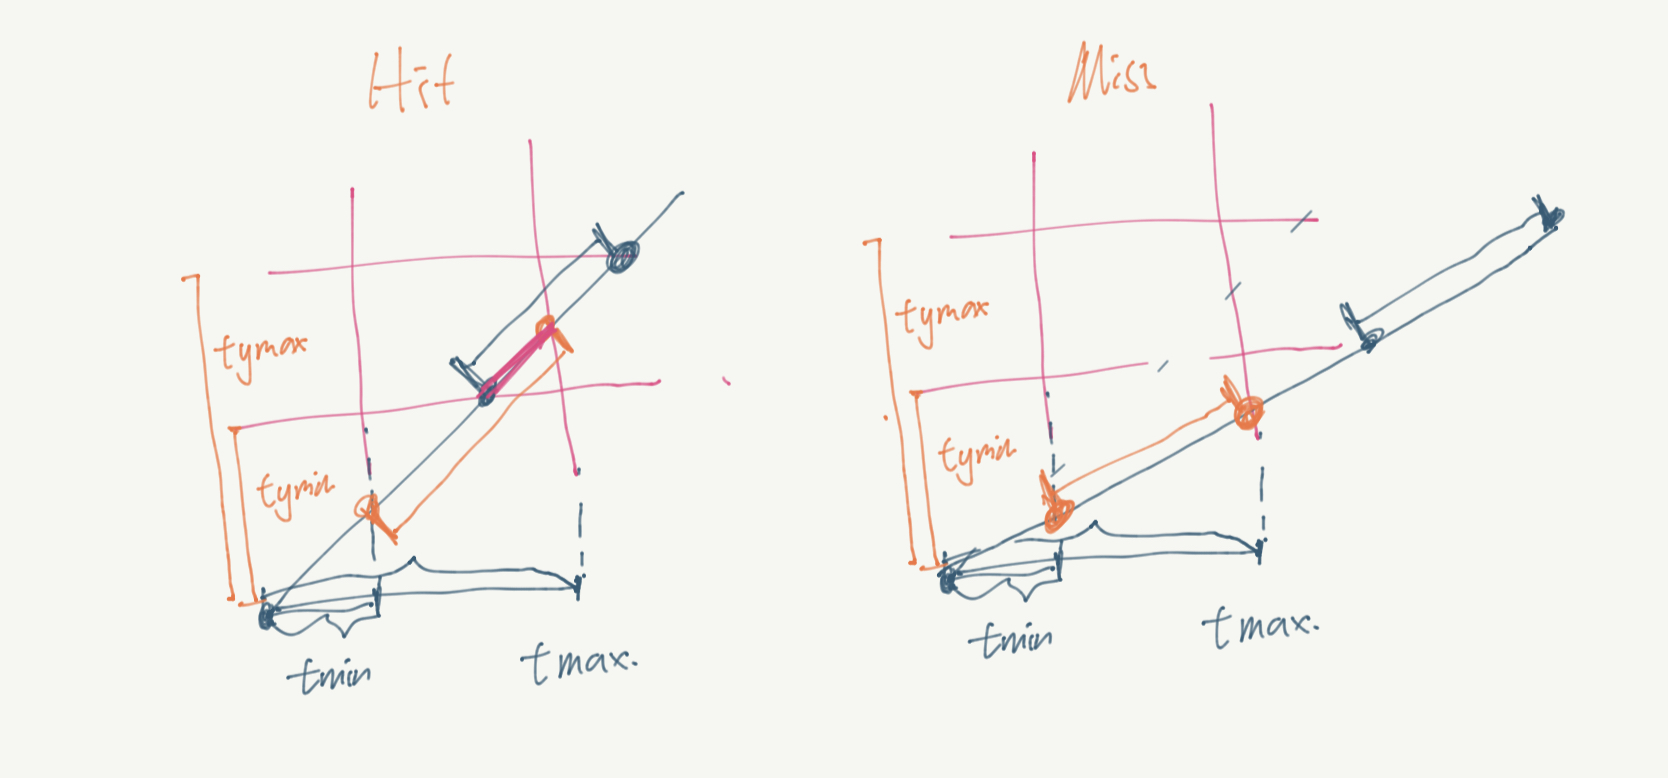 Hit
Miss
tymax
tymin
tmin
tmax.
tymax
tymin
tmin
tmax.